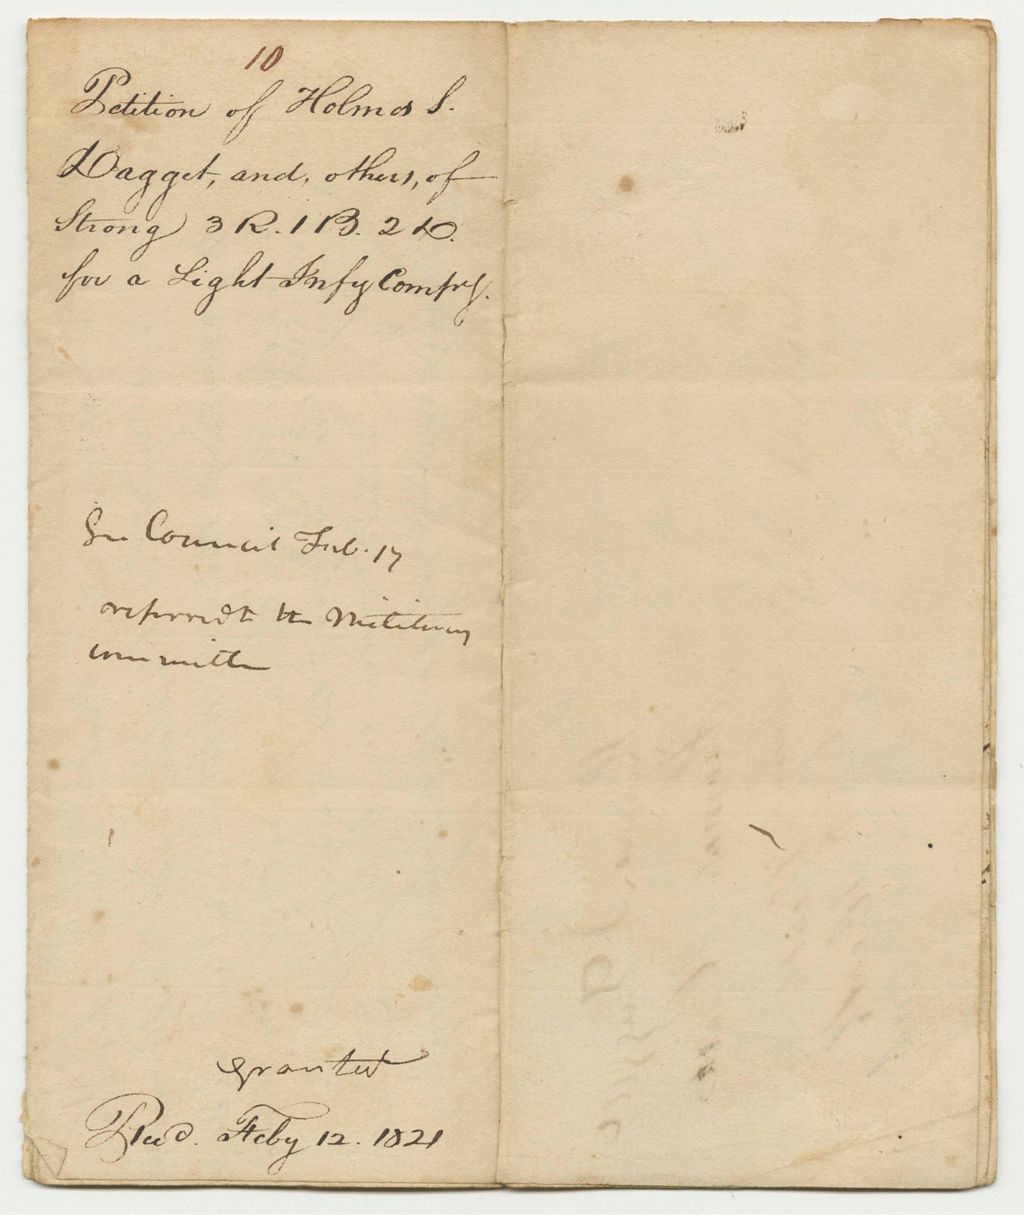 10
Petition of Holmes S.
Dagget, and, others, of
Strong 3 R. 1 B. 2 D.
for a Light Infy Compy.
In Council Feb. 17
referred to the Military
committee
granted
Recd. Feby 12. 1821